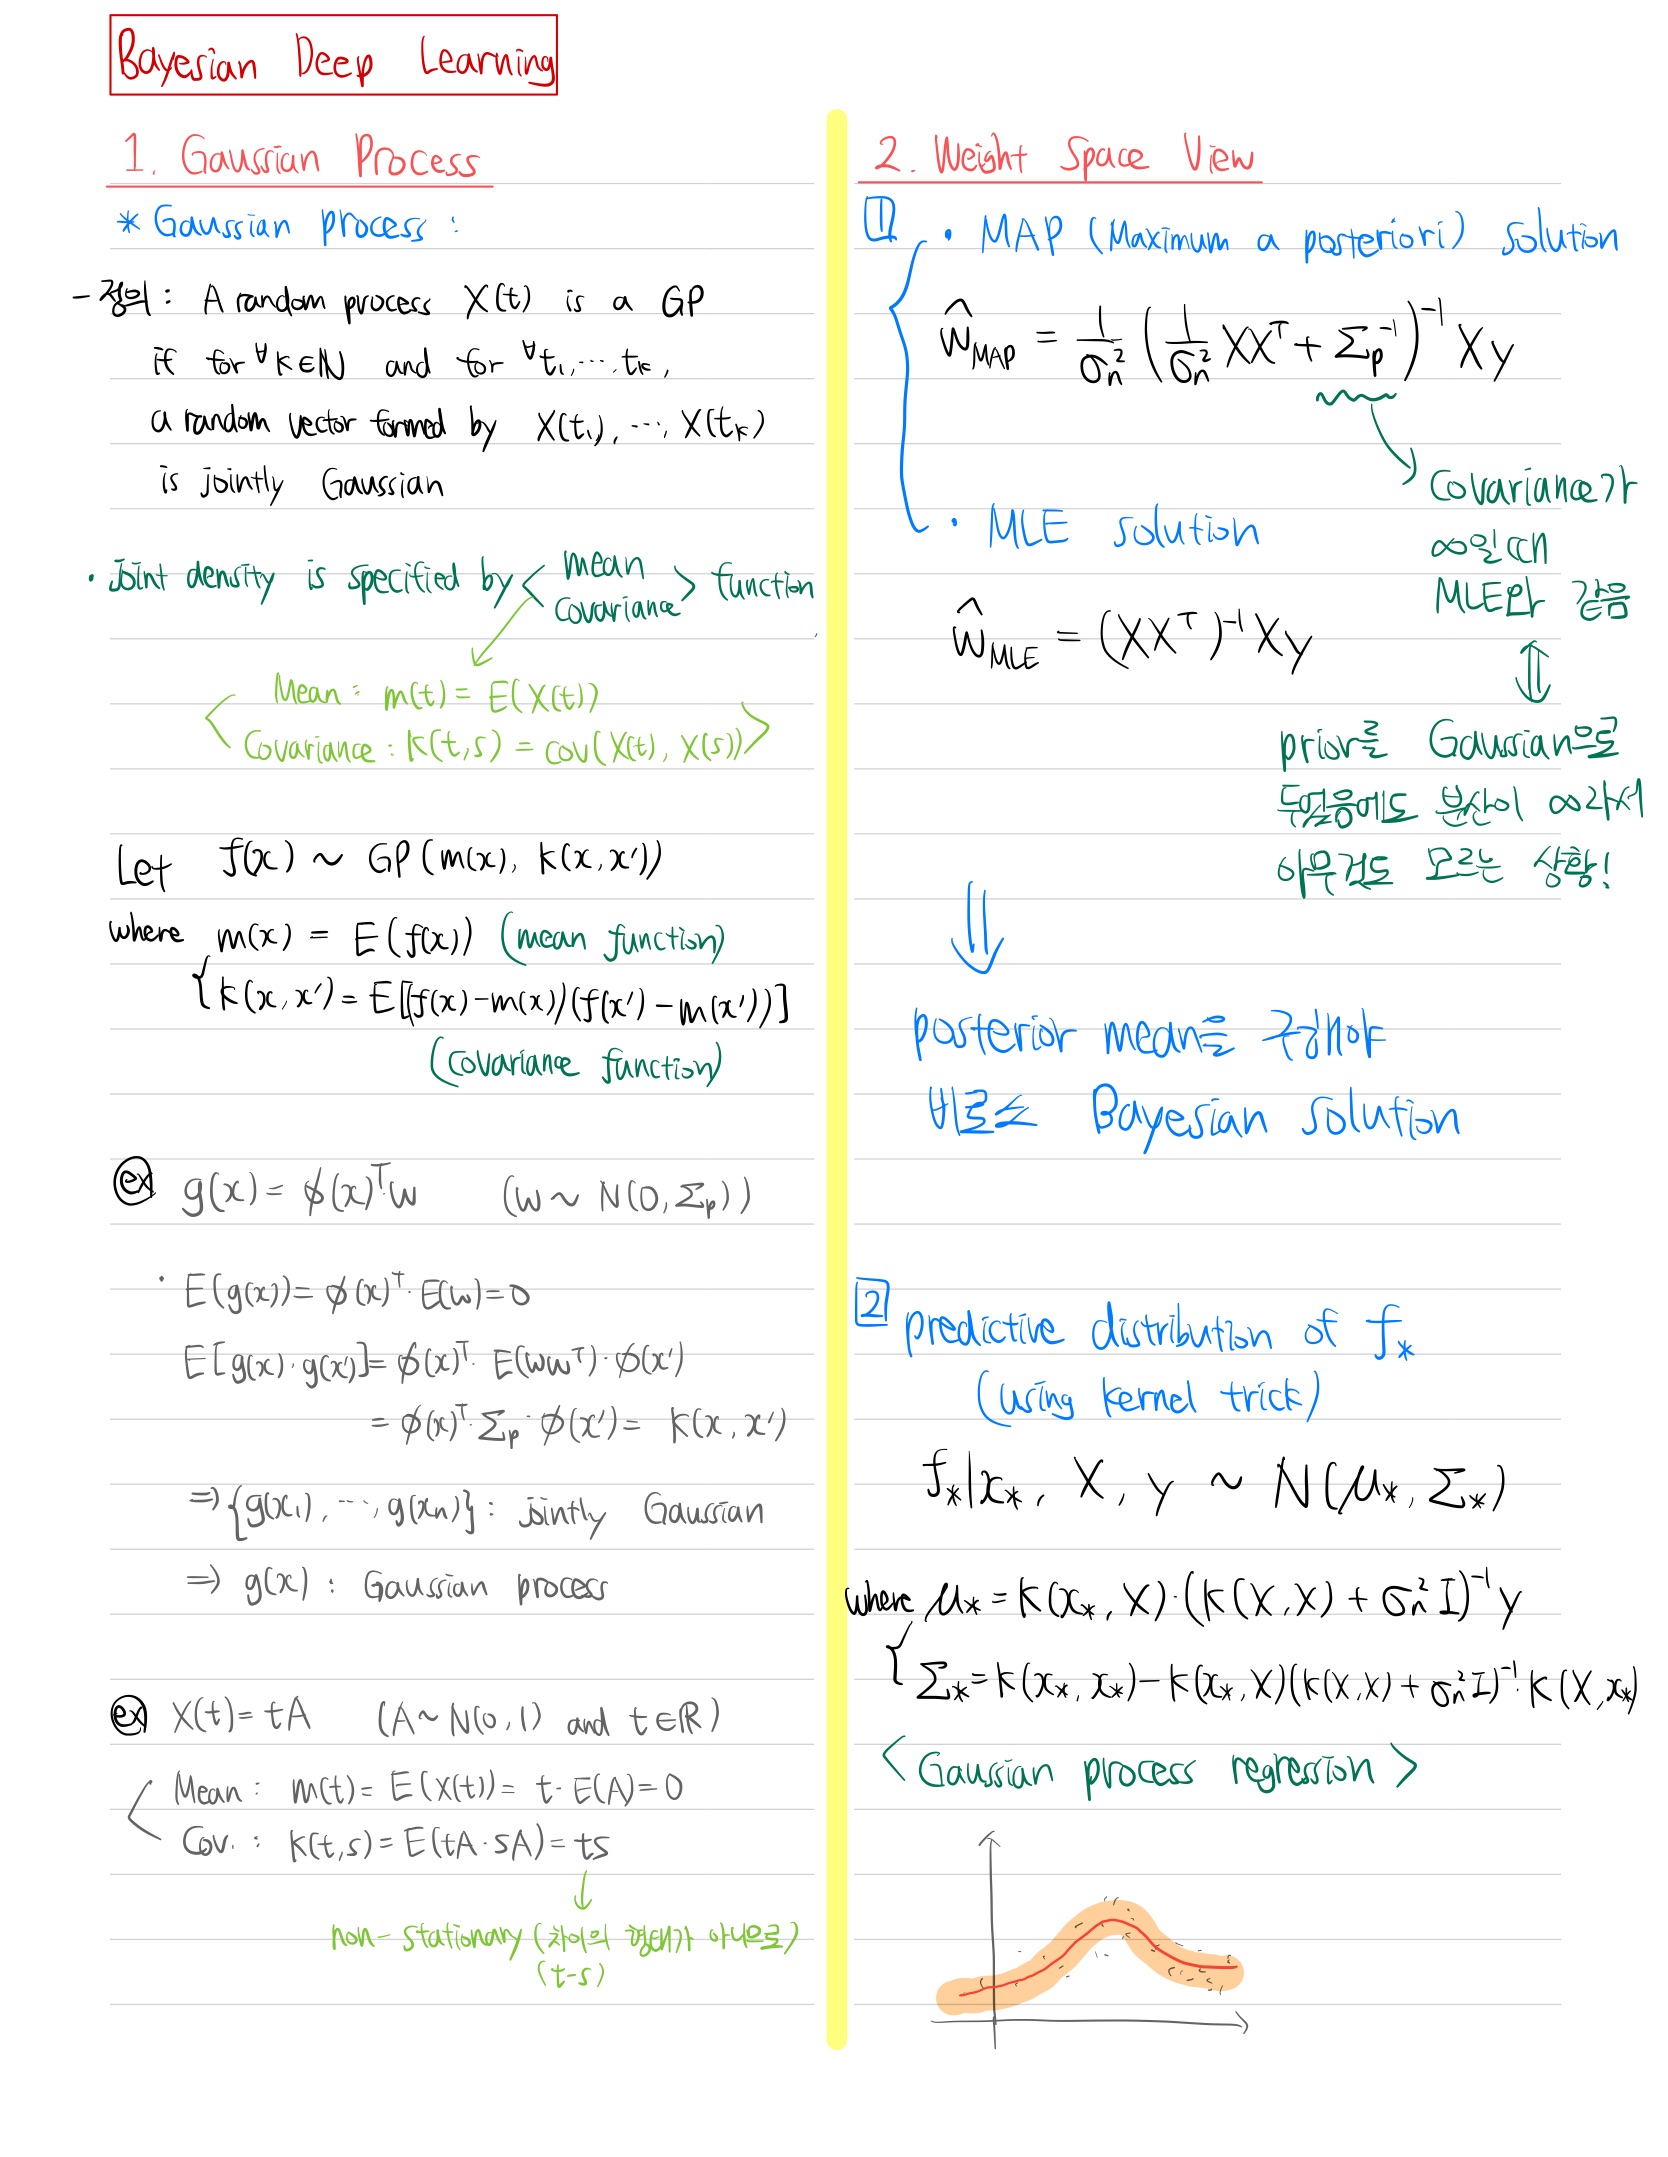 Bayesian Deep Learning
1. Gaussian Process
* Gaussian process :
- 정의 : A random process X(t) is a GP
if for ∀k∈ℕ and for ∀t₁, ⋯, tₖ,
a random vector formed by X(t₁), ⋯, X(tₖ)
is jointly Gaussian
· Joint density is specified by < mean
covariance > function
Mean : m(t) = E(X(t))
Covariance : k(t,s) = cov(X(t), X(s))
Let f(x) ~ GP(m(x), k(x,x'))
where m(x) = E(f(x)) (mean function)
k(x,x') = E[(f(x)-m(x))(f(x')-m(x'))]
(covariance function)
ex g(x) = ϕ(x)ᵀw (w ~ N(0, Σₚ))
· E(g(x)) = ϕ(x)ᵀ· E(w) = 0
E[g(x)·g(x')] = ϕ(x)ᵀ· E(wwᵀ)·ϕ(x')
= ϕ(x)ᵀ· Σₚ ·ϕ(x') = k(x,x')
⇒ {g(x₁), ⋯, g(xₙ)} : jointly Gaussian
⇒ g(x) : Gaussian process
ex X(t) = tA (A ~ N(0,1) and t∈ℝ)
Mean : m(t) = E(X(t)) = t·E(A) = 0
Cov. : k(t,s) = E(tA·sA) = ts
non-stationary (차이의 형태가 아니므로)
(t-s)
2. Weight Space View
1 · MAP (Maximum a posteriori) solution
ŵ_MAP = 1/σₙ² (1/σₙ² XXᵀ + Σₚ⁻¹)⁻¹ Xy
Covariance가
∞일 때
MLE와 같음
· MLE solution
ŵ_MLE = (XXᵀ)⁻¹Xy
⇕
prior를 Gaussian으로
두었음에도 분산이 ∞라서
아무것도 모르는 상황!
⇓
posterior mean을 구해야
비로소 Bayesian solution
2 predictive distribution of f_*
(using kernel trick)
f_*|x_*, X, y ~ N(μ_*, Σ_*)
where μ_* = K(x_*, X)·(K(X,X) + σₙ²I)⁻¹y
Σ_* = K(x_*, x_*) - K(x_*, X)(K(X,X) + σₙ²I)⁻¹·K(X, x_*)
< Gaussian process regression >